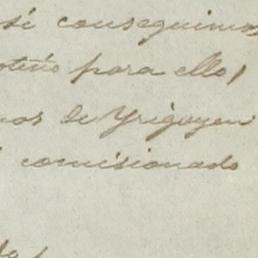 si conseguimos
para ello,
de Yrigoyen
comisionado